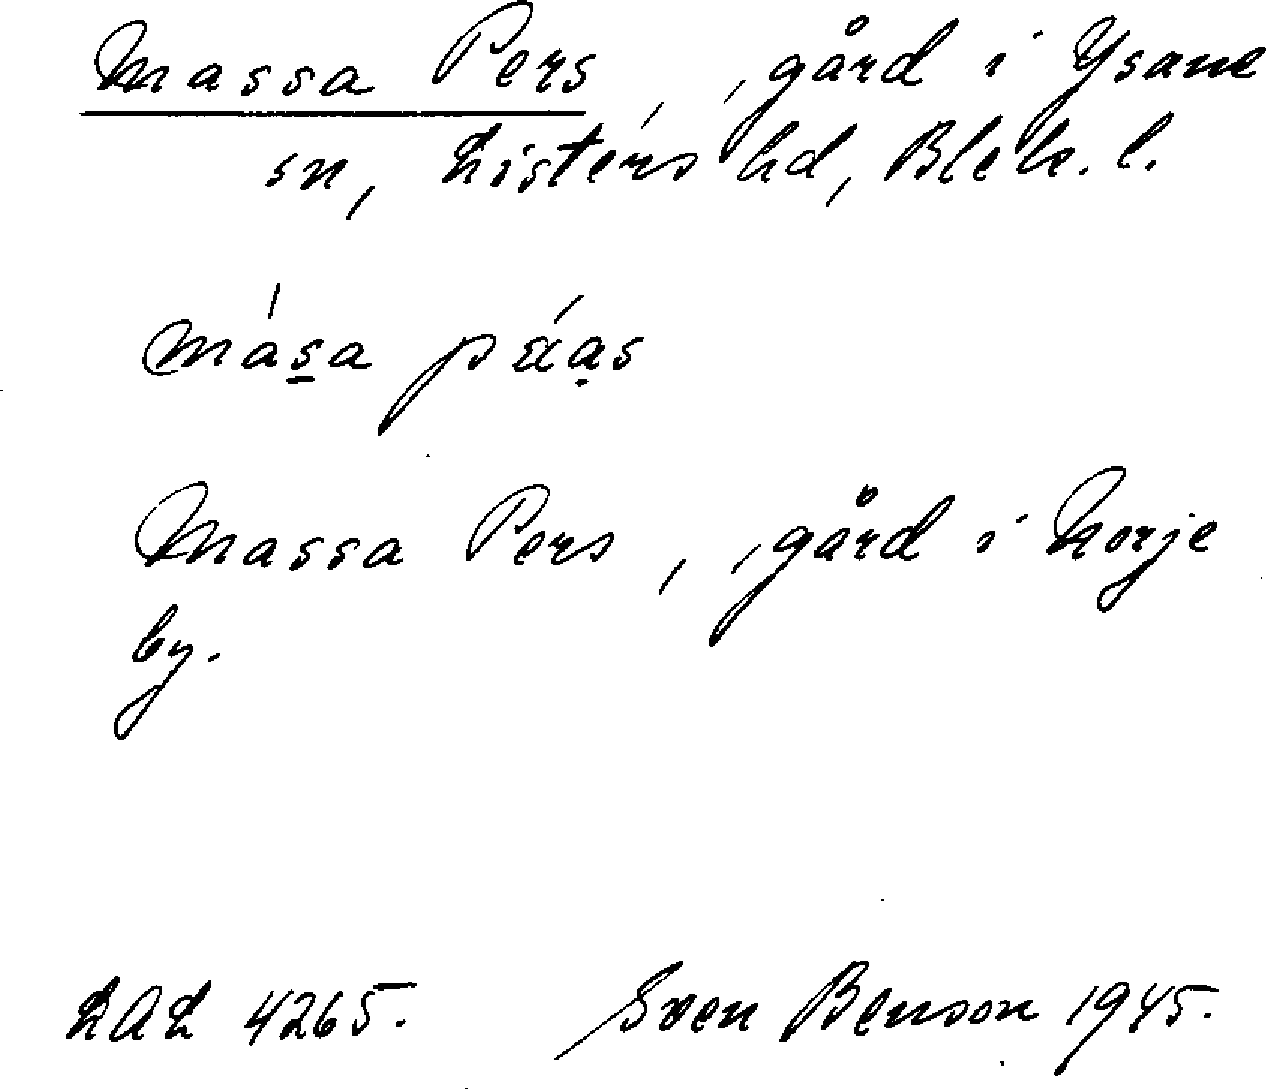 Massa Pers, gård i Ysane
sn, Listers hd, Blek. l.
mása pǽa̤s
Massa Pers, gård i Norje
by.
LAL 4265.
Sven Benson 1945.